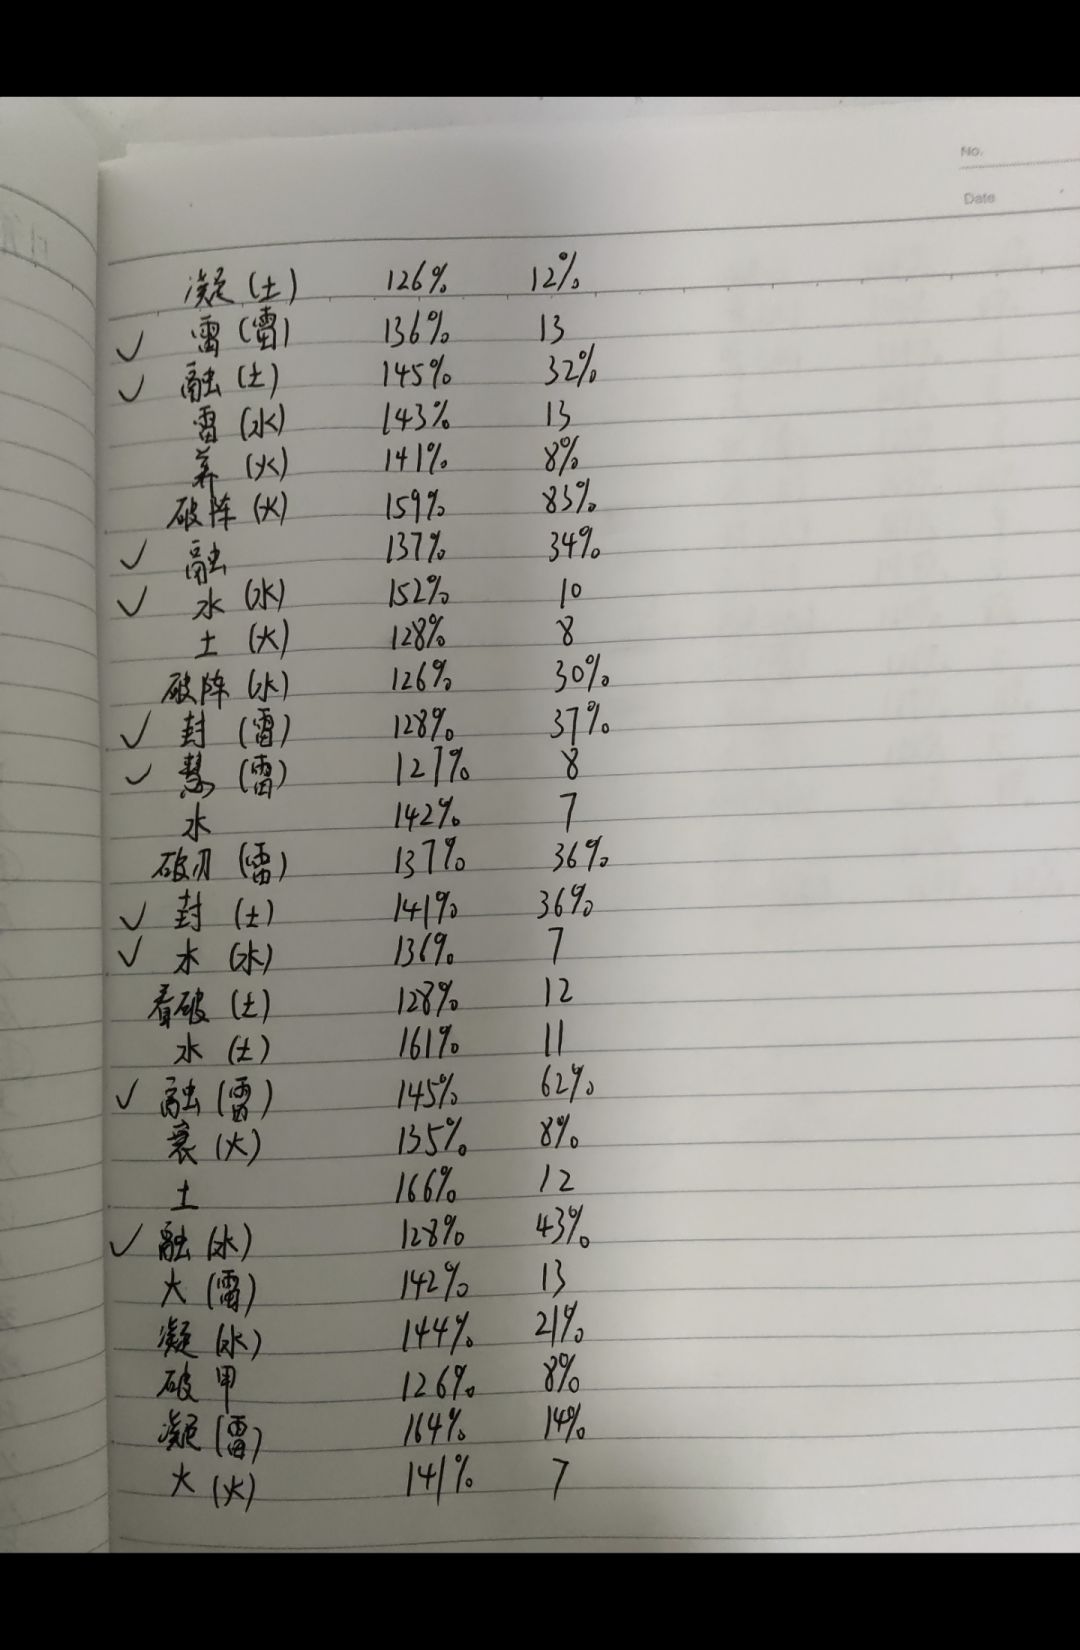 No.
Date
凝(土) 126% 12%
✓ 雷(雷) 136% 13
✓ 融(土) 145% 32%
雷(水) 143% 13
养(火) 141% 8%
破阵(火) 159% 83%
✓ 融 137% 34%
✓ 水(水) 152% 10
土(火) 128% 8
破阵(水) 126% 30%
✓ 封(雷) 128% 37%
✓ 慧(雷) 127% 8
水 142% 7
破刃(雷) 137% 36%
✓ 封(土) 141% 36%
✓ 水(水) 136% 7
看破(土) 128% 12
水(土) 161% 11
✓ 融(雷) 145% 62%
衰(火) 135% 8%
土 166% 12
✓ 融(水) 128% 43%
火(雷) 142% 13
凝(水) 144% 21%
破甲 126% 8%
凝(雷) 164% 14%
火(火) 141% 7